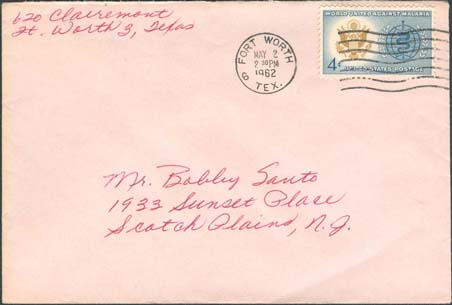 620 Clairemont
Ft. Worth 3, Texas
FORT WORTH
MAY 2
2 30 PM
1962
TEX.
6
WORLD UNITED AGAINST MALARIA
4¢
UNITED STATES POSTAGE
Mr. Bobby Santo
1933 Sunset Place
Scotch Plains, N. J.